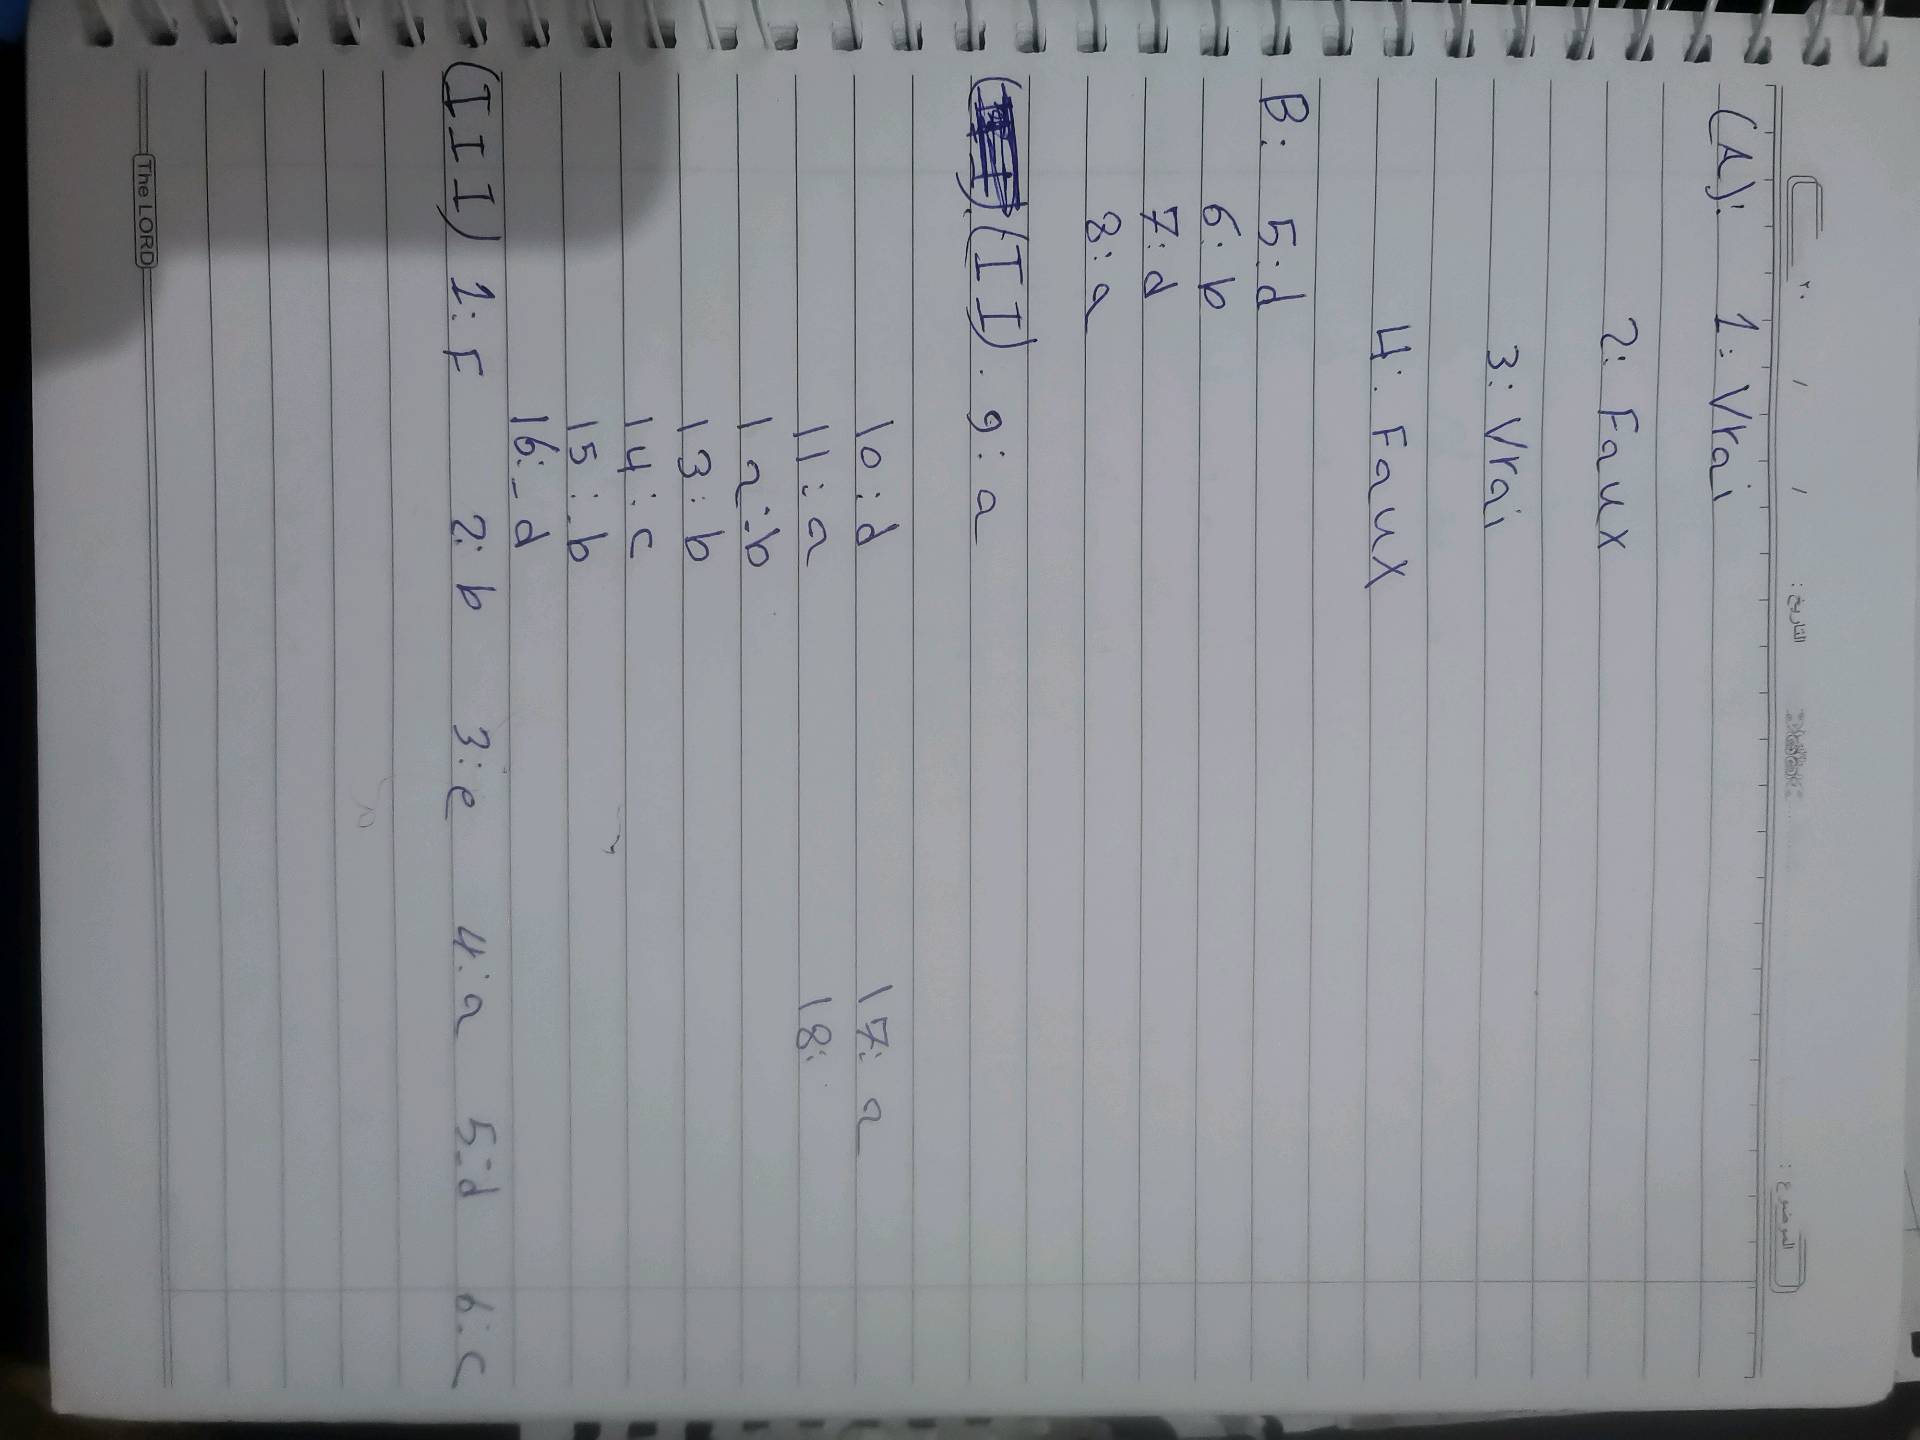 الموضوع : التاريخ : / / ٢٠
(A): 1: Vrai
2: Faux
3: Vrai
4: Faux
B: 5: d
6: b
7: d
8: a
(II). 9: a
10: d 17: a
11: a 18:
12: b
13: b
14: c
15: b
16: d
(III) 1: F 2: b 3: e 4: a 5: d 6: c
The LORD